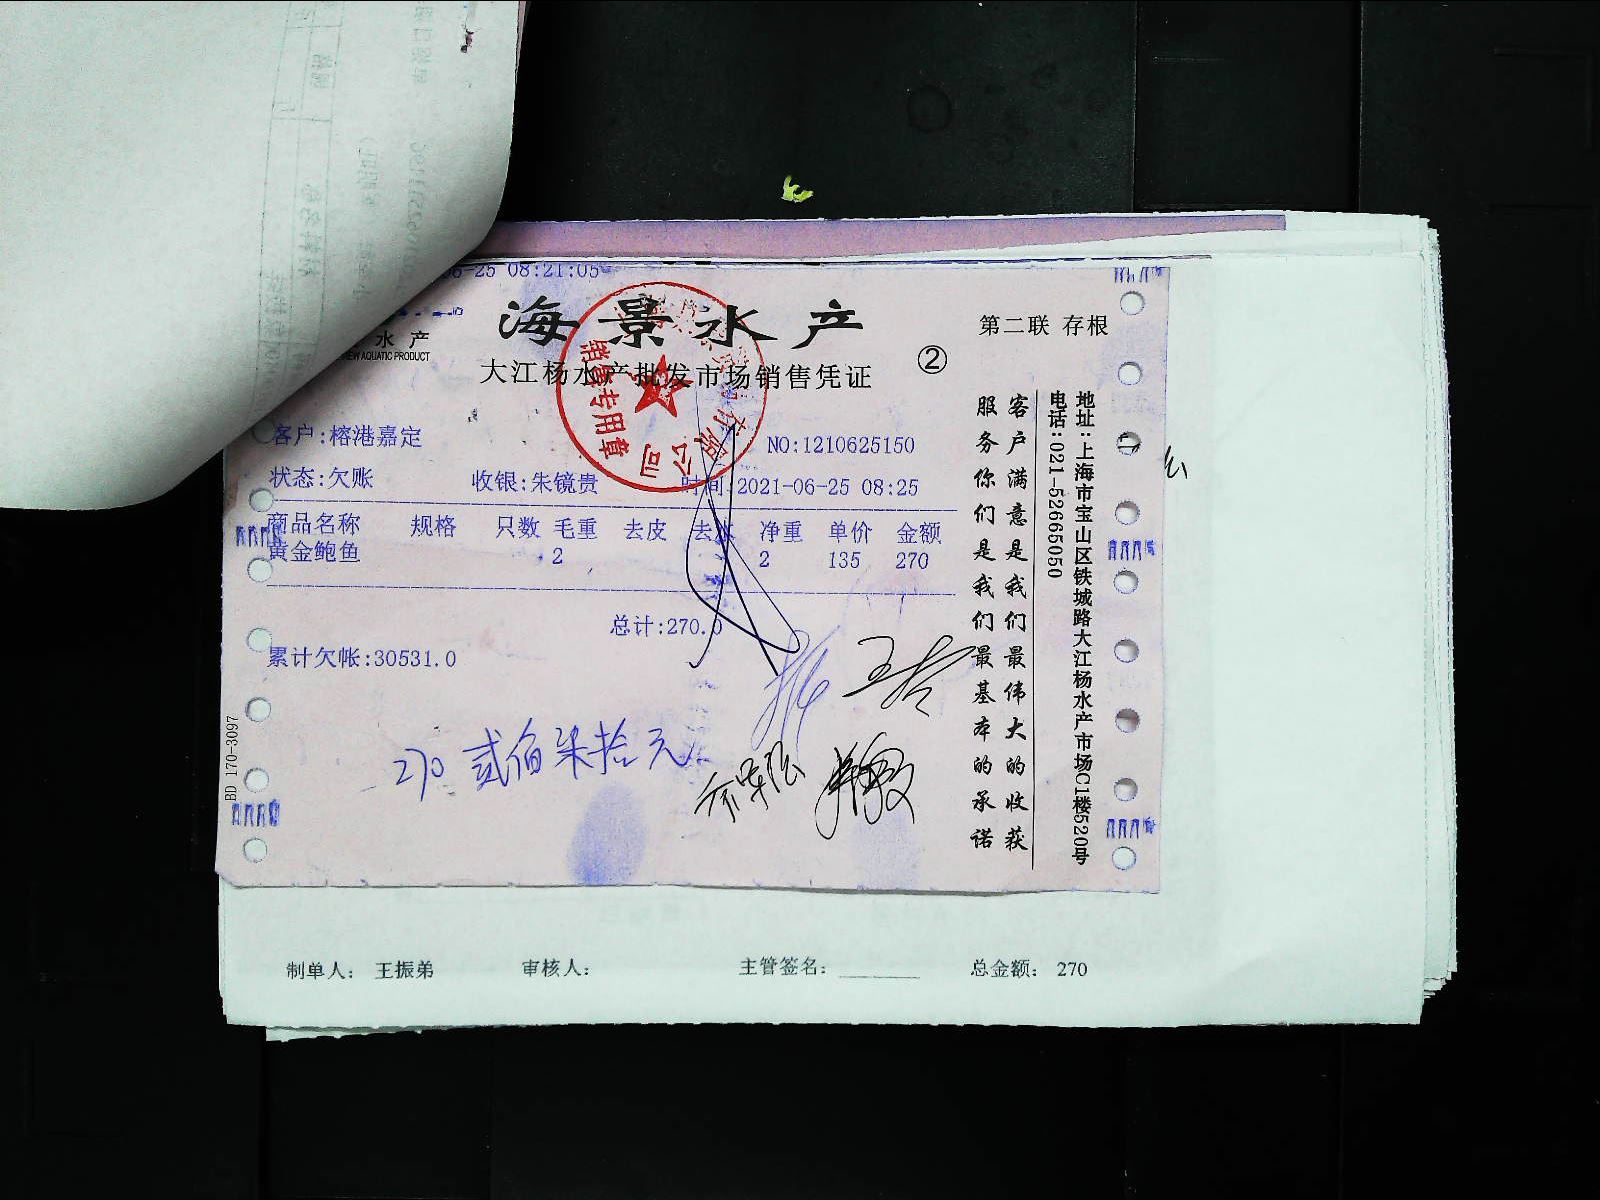 -25 08:21:05
海景水产
水产
AQUATIC PRODUCT
大江杨水产批发市场销售凭证
②
第二联 存根
销售专用章
公司
客户:榕港嘉定
NO:1210625150
状态:欠账 收银:朱镜贵 时间:2021-06-25 08:25
商品名称 规格 只数 毛重 去皮 去水 净重 单价 金额
黄金鲍鱼 2 2 135 270
总计:270.0
累计欠帐:30531.0
270 贰佰柒拾元
客户满意是我们最伟大的收获
服务你们是我们最基本的承诺
地址:上海市宝山区铁城路大江杨水产市场C1楼520号
电话:021-52665050
BD 170-3097
制单人: 王振弟 审核人: 主管签名: 总金额: 270